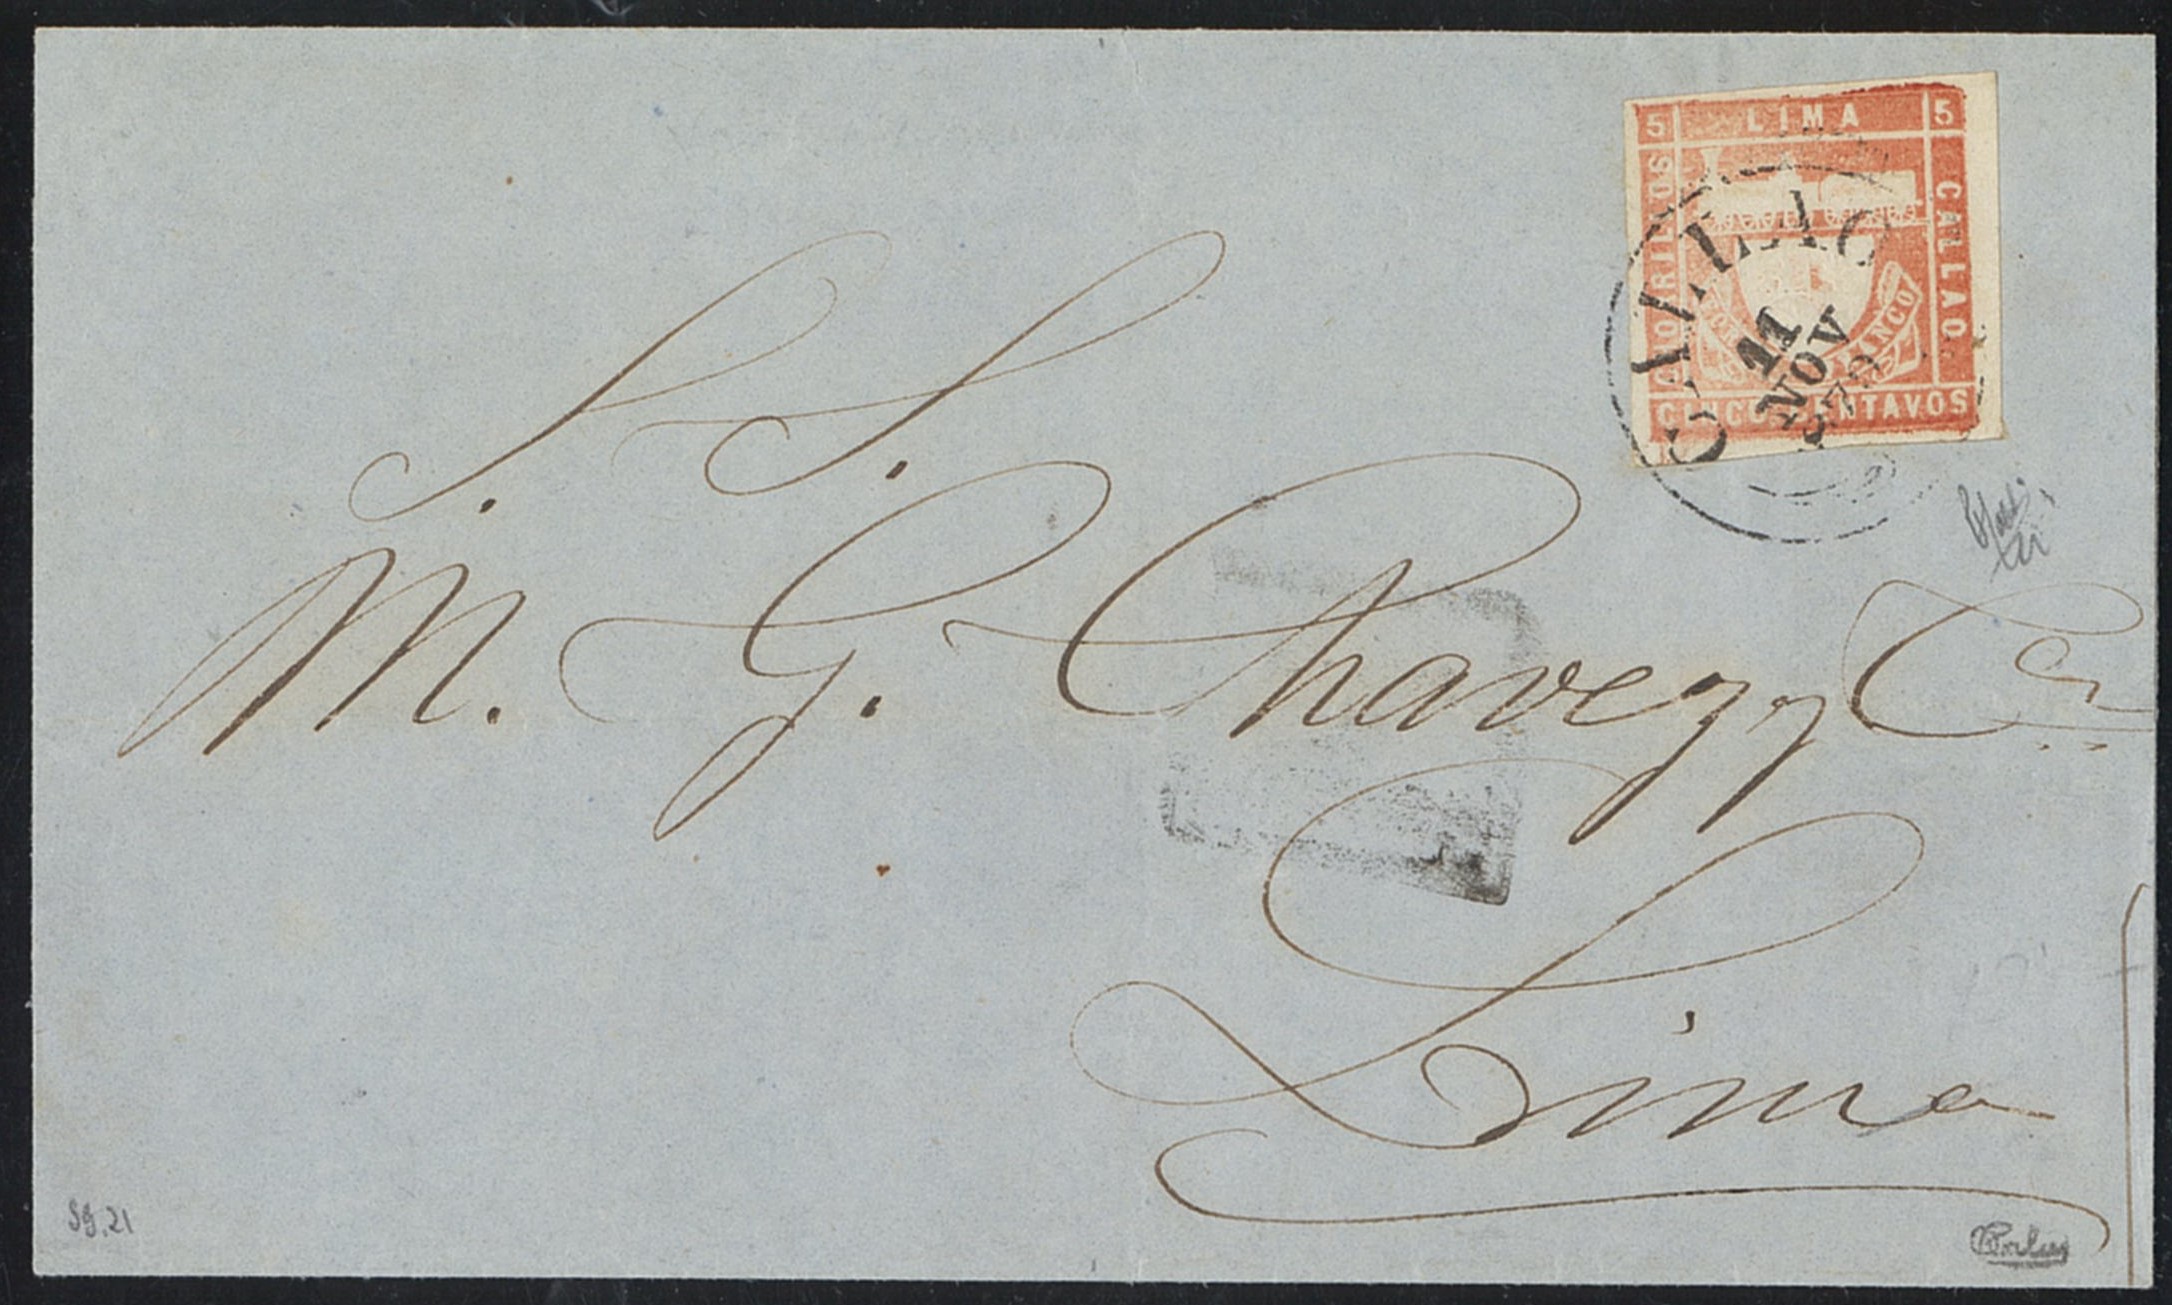 5 LIMA 5
CHORRILLOS
CALLAO
CINCO CENTAVOS
CALLAO
11
NOV
S. S.
M. G. Chavez y Ca
Lima
SG. 21